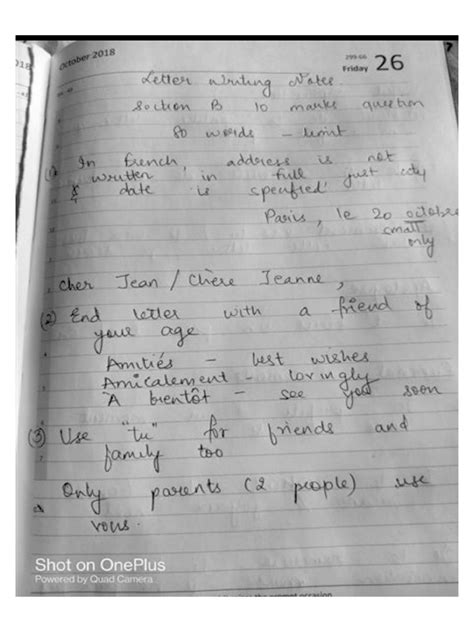 018
October 2018
299-66
Friday 26
7
Letter Writing Notes.
Section B 10 marks question
80 words - limit
(1) In French, address is not
written in full just city
& date is specified
Paris, le 20 octobre
small
only
Cher Jean / Chère Jeanne,
(2) End letter with a friend of
your age
Amitiés - best wishes
Amicalement - lovingly
À bientôt - see you soon
(3) Use "tu" for friends and
family too
Only parents (2 people) use
vous.
Shot on OnePlus
Powered by Quad Camera
occasion